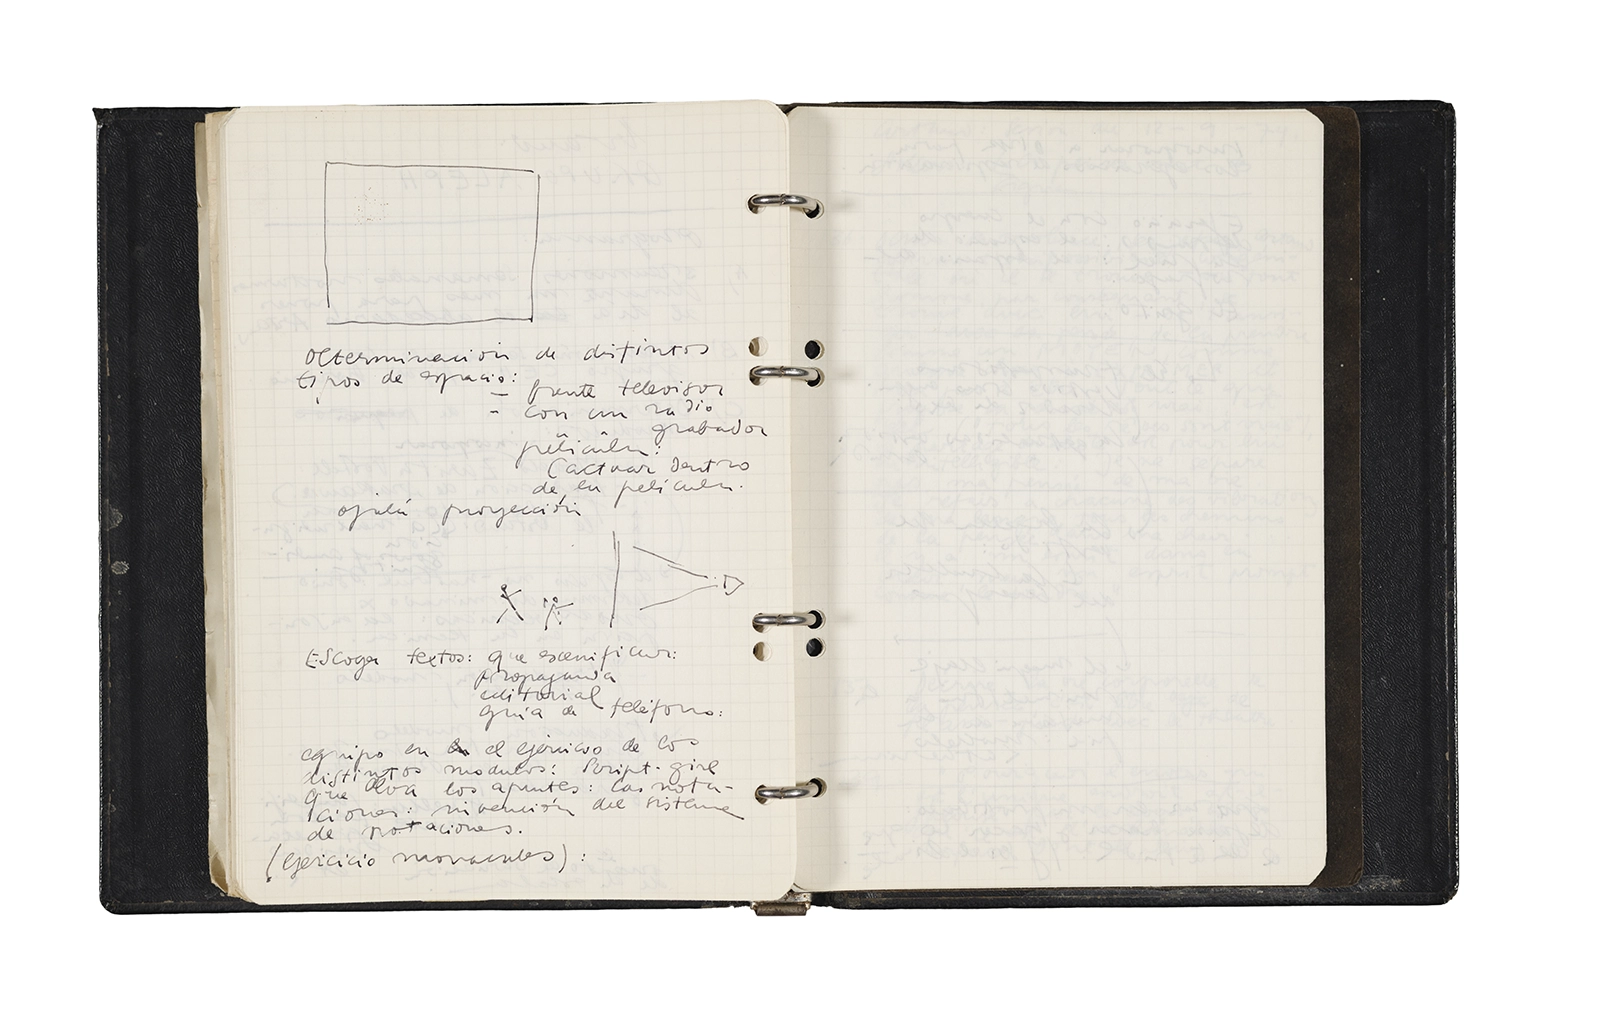 Determinación de distintos
tipos de espacio:
– frente televisor
– con un radio
grabador
película:
(actuar dentro
de la película.
ojalá proyección
Escoger textos: que escenificar:
propaganda
editorial
guía de teléfono:
equipo en el ejercicio de los
distintos modulos: Script-girl
que lleva los apuntes: Las nota-
ciones: invención del sistema
de notaciones.
(ejercicio monacales):